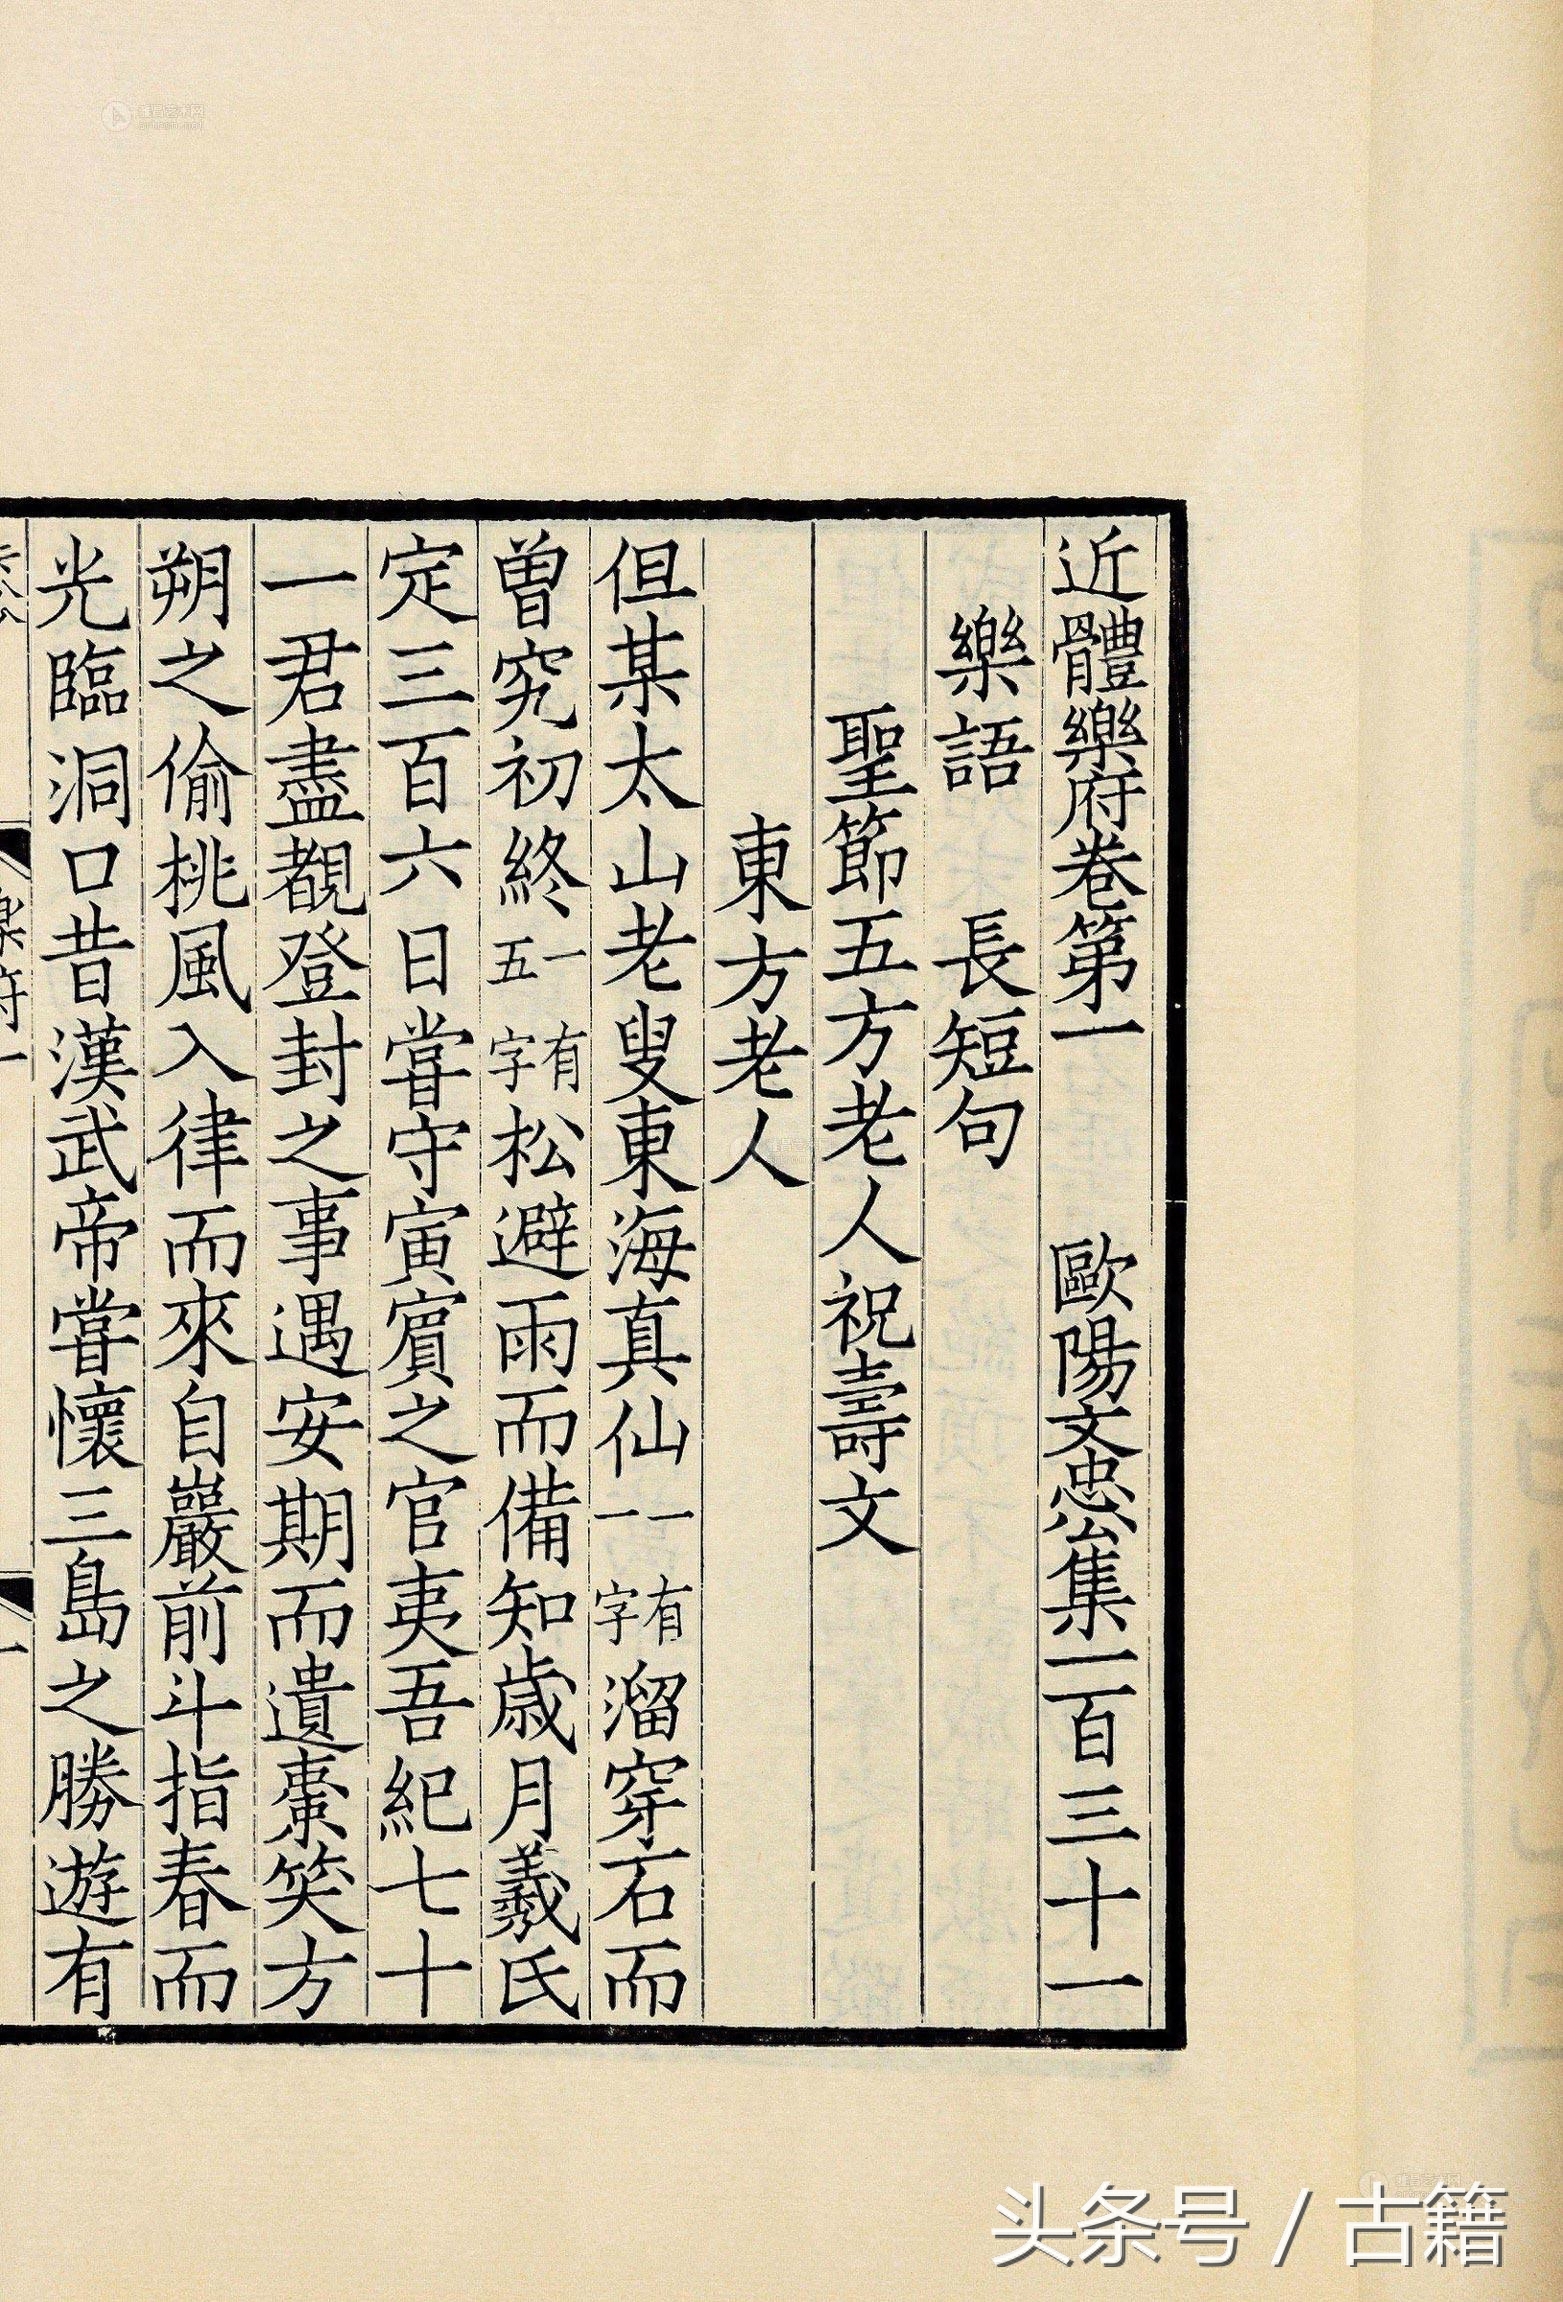 近體樂府卷第一　歐陽文忠公集一百三十一
樂語　長短句
聖節五方老人祝壽文
東方老人
但某太山老叟東海真仙一一有字溜穿石而
曽究初終一五有字松避雨而備知歳月羲氏
定三百六日嘗守寅賔之官夷吾紀七十
一君盡覩登封之事遇安期而遺棗笑方
朔之偷桃風入律而來自巖前斗指春而
光臨洞口昔漢武帝嘗懷三島之勝遊有
樂府一
一
头条号 / 古籍